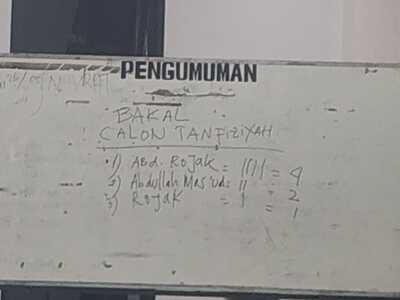 PENGUMUMAN
BAKAL
CALON TANFIZIYAH
1) ABD. ROJAK = |||| = 4
2) Abdullah Mas'ud = || = 2
3) ROJAK = | = 1